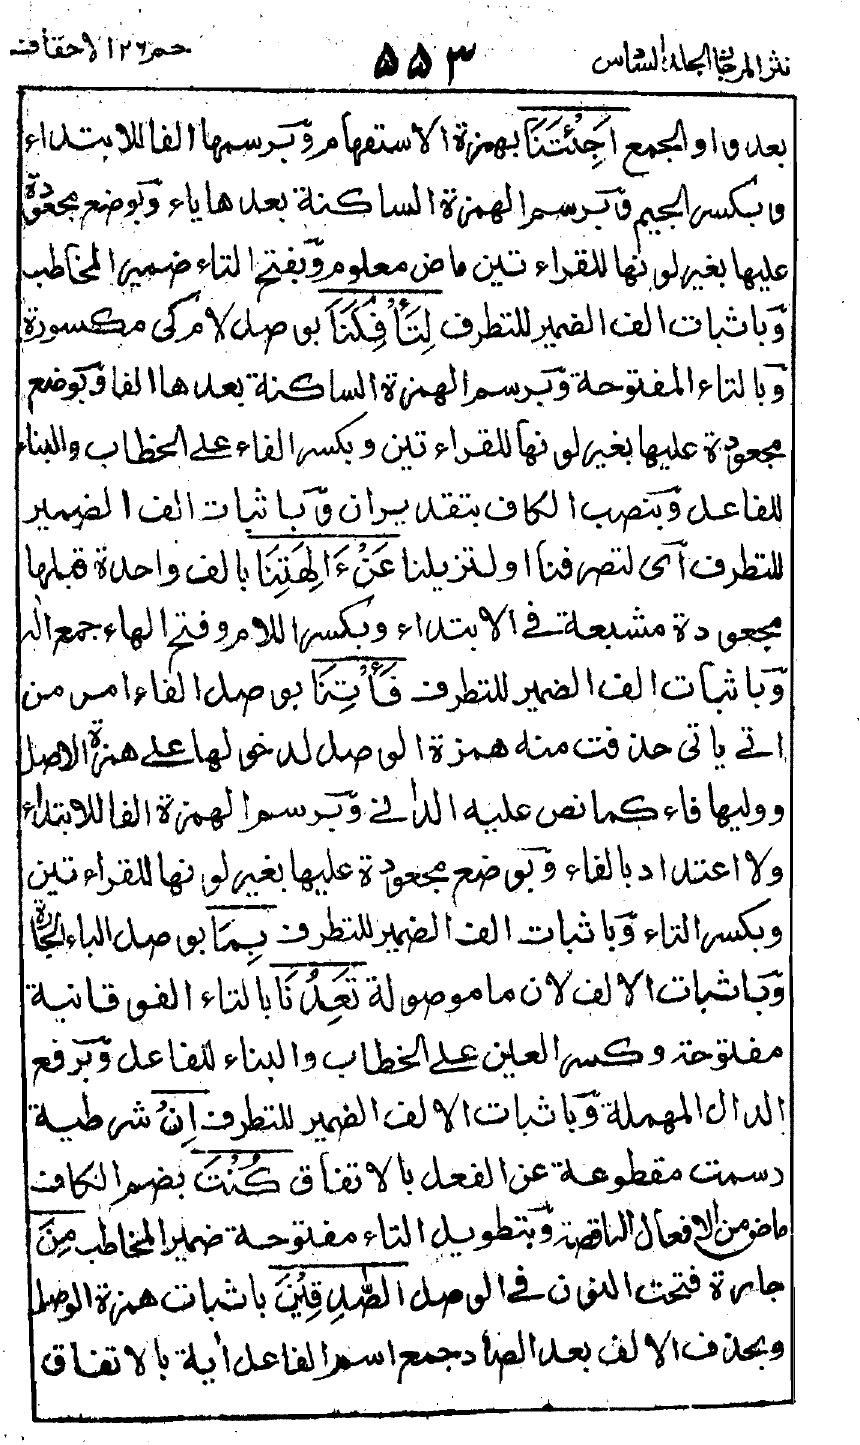 نثر المرجان المجلد السادس ٥٥٣ حم ٢٦ الاحقاف
بعد واو الجمع اَجِئْتَنَا بهمزة الاستفهام وَبرسمها الفا للابتداء
وبكسر الجيم وَبرسم الهمزة الساكنة بعدها ياء وَبوضع مجعودة
عليها بغير لونها للقراءتين ماض معلوم وَبفتح التاء ضمير المخاطب
وَباثبات الف الضمير للتطرف لِتَأْفِكَنَا بوصل لام كى مكسورة
وَبالتاء المفتوحة وَبرسم الهمزة الساكنة بعدها الفا وَبوضع
مجعودة عليها بغير لونها للقراءتين وبكسر الفاء على الخطاب والبناء
للفاعل وَبنصب الكاف بتقدير ان وَباثبات الف الضمير
للتطرف آى لتصرفنا او لتزيلنا عَنْ ءَالِهَتِنَا بالف واحدة قبلها
مجعودة مشبعة فى الابتداء وبكسر اللام وفتح الهاء جمع اله
وَباثبات الف الضمير للتطرف فَأْتِنَا بوصل الفاء امر من
اتى ياتى حذفت منه همزة الوصل لدخولها على همزة الاصل
ووليها فاء كما نص عليه الدانى وَبرسم الهمزة الفا للابتداء
ولا اعتداد بالفاء وَبوضع مجعودة عليها بغير لونها للقراءتين
وبكسر التاء وَباثبات الف الضمير للتطرف بِمَا بوصل الباء الجارة
وَباثبات الالف لان ما موصولة تَعِدُنَا بالتاء الفوقانية
مفتوحة وكسر العين على الخطاب والبناء للفاعل وَبرفع
الدال المهملة وَباثبات الالف الضمير للتطرف اِنْ شرطية
رسمت مقطوعة عن الفعل بالاتفاق كُنْتَ بضم الكاف
ماض من الافعال الناقصة وَبتطويل التاء مفتوحة ضمير المخاطب مِنَ
جارة فتحت النون فى الوصل الصّٰدِقِيْنَ باثبات همزة الوصل
وبحذف الالف بعد الصاد جمع اسم الفاعل اٰية بالاتفاق